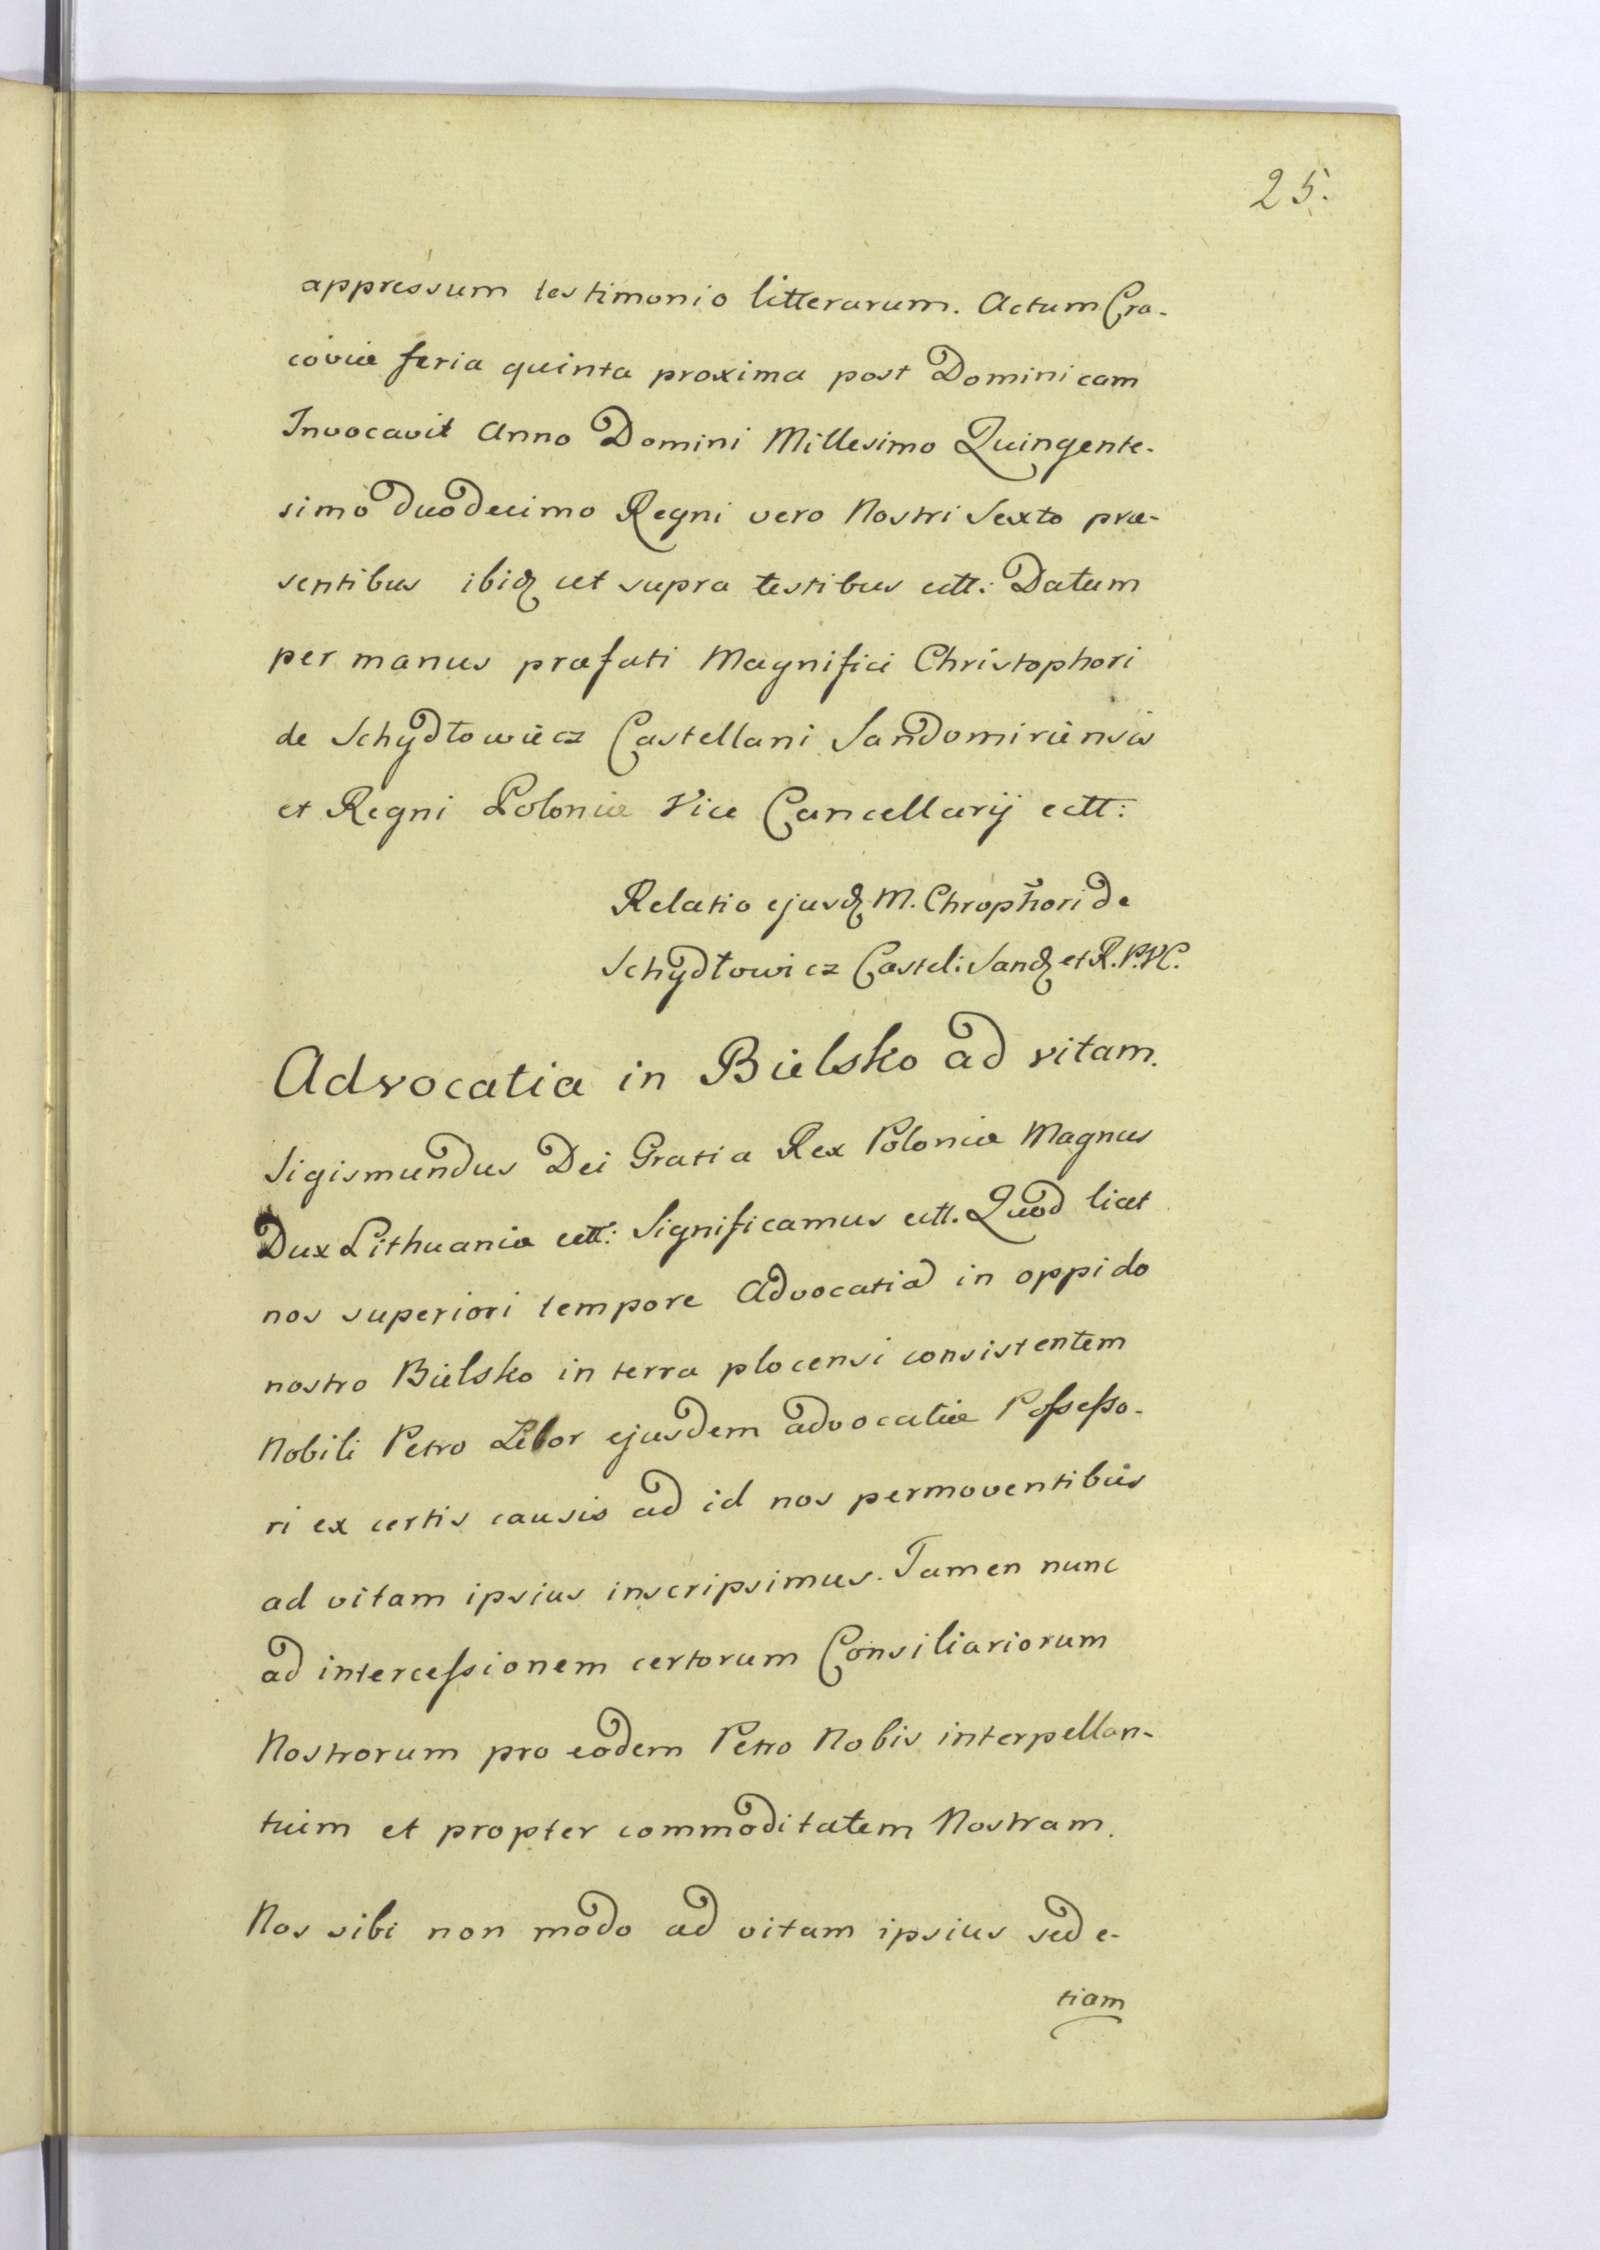 25.
appressum testimonio litterarum. Actum Cra-
coviæ feria quinta proxima post Dominicam
Invocavit Anno Domini Millesimo Quingente-
simo duodecimo Regni vero Nostri Sexto præ-
sentibus ibiq ut supra testibus ett: Datum
per manus præfati Magnifici Christophori
de Schydłowiecz Castellani Sandomiriensis
et Regni Poloniæ Vice Cancellarij ectt:
Relatio ejusq M. Chrophori de
Schydłowicz Castel: Sanq et R. P. VC.
Advocatia in Bielsko ad vitam.
Sigismundus Dei Gratia Rex Poloniæ Magnus
Dux Lithuaniæ ett: Significamus ett. Quod licet
nos superiori tempore Advocatiā in oppido
nostro Bielsko in terra plocensi consistentem
Nobili Petro ejusdem advocatiæ Possesso-
ri ex certis causis ad id nos permoventibus
ad vitam ipsius inscripsimus. Tamen nunc
ad intercessionem certorum Consiliariorum
Nostrorum pro eodem Petro Nobis interpellan-
tuim et propter commoditatem Nostram.
Nos sibi non modo ad vitam ipsius sed e-
tiam